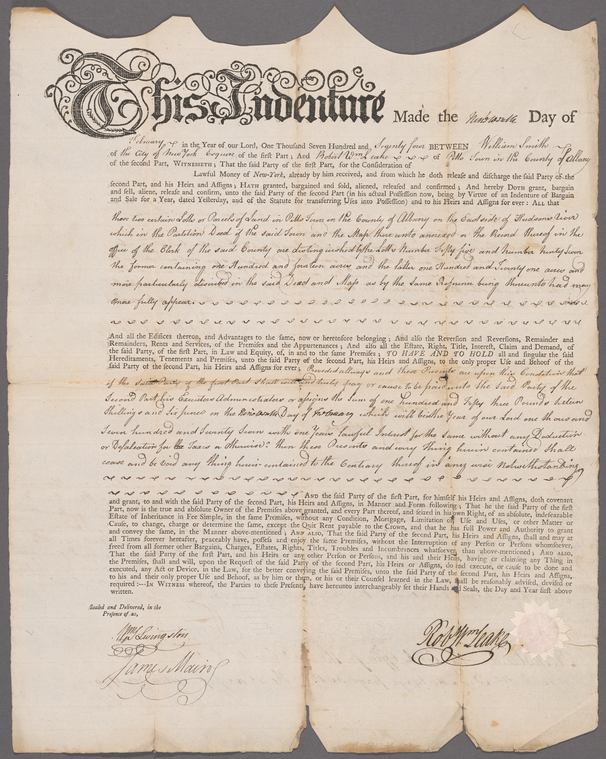 This Indenture Made the Nineteenth Day of
February in the Year of our Lord, One Thousand Seven Hundred and, Seventy four BETWEEN William Smith
of the City of New York Esquire of the first Part; And Robert Wm. Leake of Pitts Town in the County of Albany
of the second Part, WITNESSETH; That the said Party of the first Part, for the Consideration of
Lawful Money of New-York, already by him received, and from which he doth release and discharge the said Party of the
second Part, and his Heirs and Assigns; HATH granted, bargained and sold, aliened, released and confirmed; And hereby DOTH grant, bargain
and sell, aliene, release and confirm, unto the said Party of the second Part (in his actual Possession now, being by Virtue of an Indenture of Bargain
and Sale for a Year, dated Yesterday, and of the Statute for transferring Uses into Possession) and to his Heirs and Assigns for ever: ALL that
those two certain Lotts or Parcels of Land in Pitts Town in the County of Albany on the East side of Hudsons River
which in the Partition Deed of the said Town and the Map there unto annexed on the Record thereof in the
office of the Clerk of the said County are distinguished by the Lotts Number Fifty five and Number Ninty Seven
the former containing one Hundred and fourteen acres and the latter one Hundred and Twenty one acres and
more particularly described in the said Deed and Map as by the Same Refrence being thereunto had may
more fully appear
And all the Edifices thereon, and Advantages to the same, now or heretofore belonging; And also the Reversion and Reversions, Remainder and
Remainders, Rents and Services, of the Premises and the Appurtenances; And also all the Estate, Right, Title, Interest, Claim and Demand, of
the said Party, of the first Part, in Law and Equity, of, in and to the same Premises; TO HAVE AND TO HOLD all and singular the said
Hereditaments, Tenements and Premises, unto the said Party of the second Part, his Heirs and Assigns, to the only proper Use and Behoof of the
said Party of the second Part, his Heirs and Assigns for ever; Provided always and these Presents are upon this Condition that
if the said Party of the first Part Shall well and truly pay or cause to be paid unto the Said Party of the
Second Part his Executors Administrators or assigns the Sum of one Hundred and Fifty three Pounds Sixteen
Shillings and Six pence on the Nineteenth Day of February which will be in the Year of our Lord one thousand
Seven hundred and Seventy Seven with one Years lawful Interest for the same without any Deduction
or Defalcation for the Taxes or otherwise: then these Presents and every thing herein contained Shall
cease and be void any thing herein contained to the Contrary thereof in any wise Notwithstanding
And the said Party of the first Part, for himself his Heirs and Assigns, doth covenant
and grant, to and with the said Party of the second Part, his Heirs and Assigns, in Manner and Form following; That he the said Party of the first
Part, now is the true and absolute Owner of the Premises above granted, and every Part thereof, and seized in his own Right, of an absolute, indefeazable
Estate of Inheritance in Fee Simple, in the same Premises, without any Condition, Mortgage, Limitation of Use and Uses, or other Matter or
Cause, to change, charge or determine the same, except the Quit Rent payable to the Crown, and that he has full Power and Authority to grant
and convey the same, in the Manner above-mentioned; AND ALSO, That the said Party of the second Part, his Heirs and Assigns, shall and may at
all Times forever hereafter, peaceably have, possess and enjoy the same Premises, without the Interruption of any Person or Persons whomsoever,
freed from all former other Bargains, Charges, Estates, Rights, Titles, Troubles and Incumbrances whatsoever, than above-mentioned; AND ALSO,
That the said Party of the first Part, and his Heirs, or any other Person or Persons, and his and their Heirs, having or claiming any Thing in
the Premises, shall and will, upon the Request of the said Party of the second Part, his Heirs or Assigns, do and execute, or cause to be done and
executed, any Act or Device, in the Law, for the better conveying the said Premises, unto the said Party of the second Part, his Heirs and Assigns,
to his and their only proper Use and Behoof, as by him or them, or his or their Counsel learned in the Law, shall be reasonably advised, devised or
required:—IN WITNESS whereof, the Parties to these Presents, have hereunto interchangeably set their Hands and Seals, the Day and Year first above
written.
Sealed and Delivered, in the
Presence of us,
Wm. Livingston
Robt. Wm. Leake
James Mains